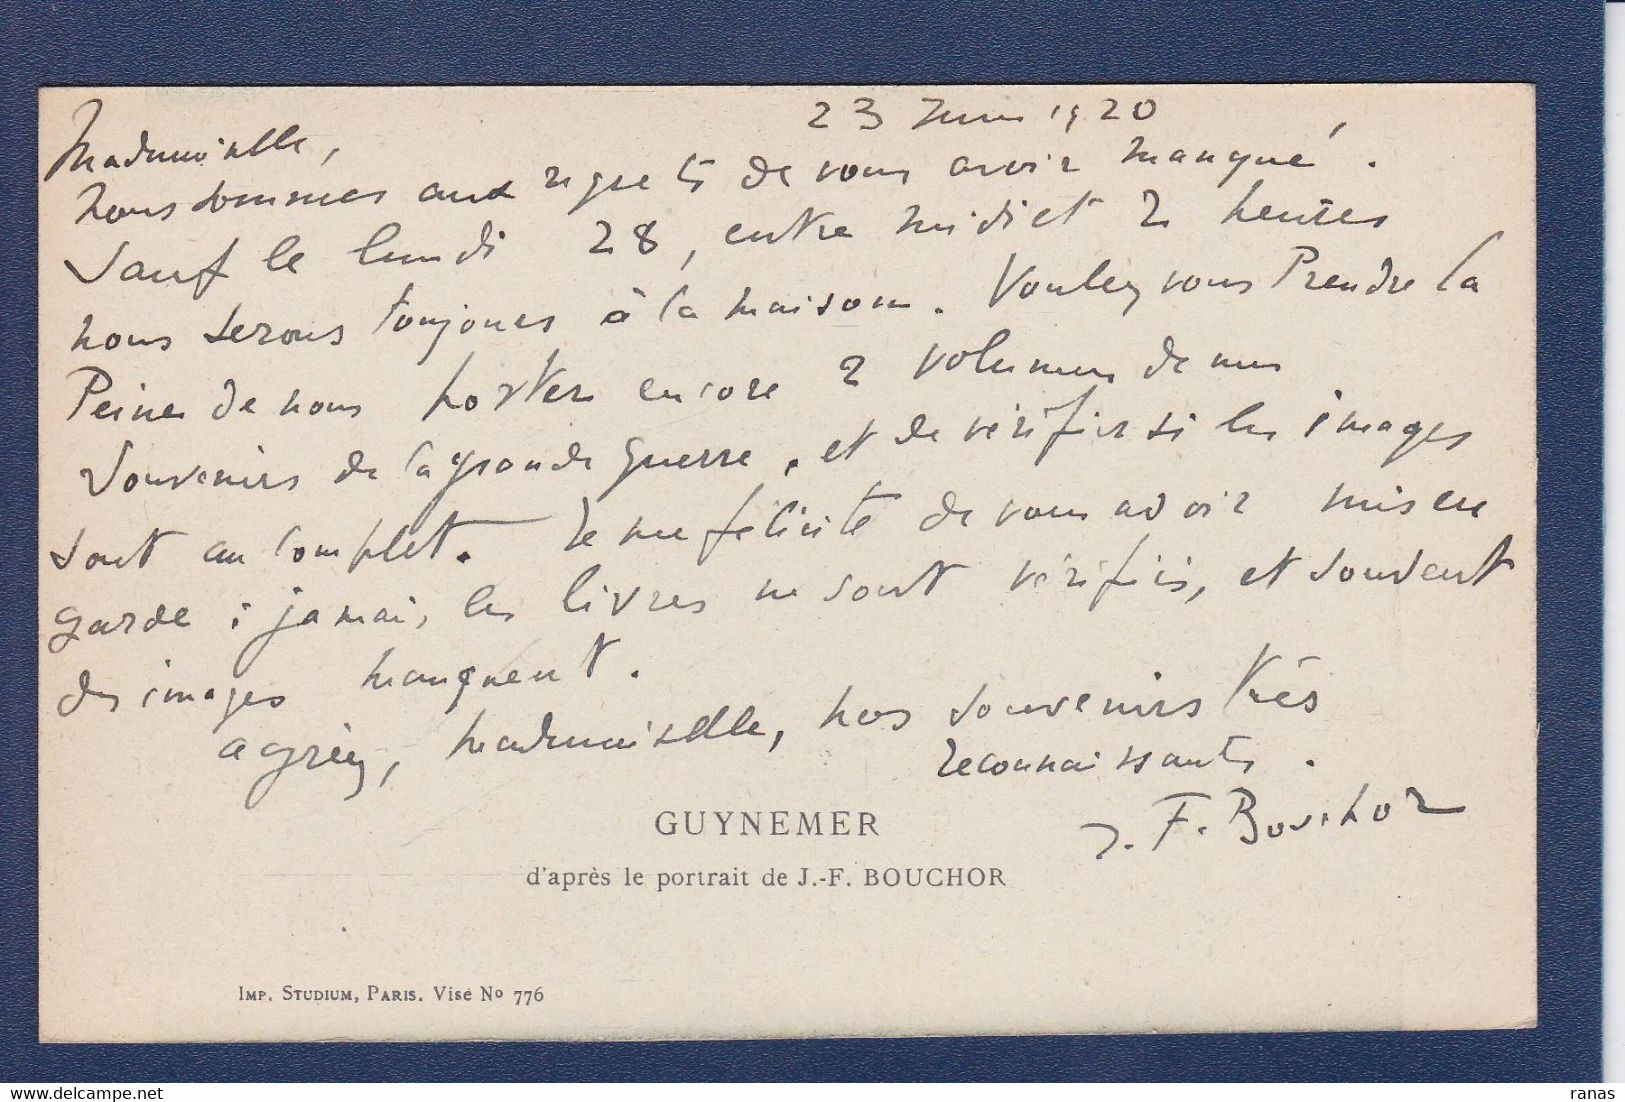 23 Juin 1920
Mademoiselle,
nous sommes aux regrets de vous avoir manqué.
Sauf le lundi 28, entre midi et 2 heures
nous serons toujours à la maison. Voulez vous Prendre la
Peine de nous porter encore 2 volumes de mes
Souvenirs de la grande guerre, et de vérifier si les images
sont au complet. Je me félicite de vous avoir mise en
garde : jamais les livres ne sont vérifiés, et souvent
des images manquent.
agréez, mademoiselle, nos souvenirs très
reconnaissants.
J. F. Bouchor
GUYNEMER
d'après le portrait de J.-F. BOUCHOR
IMP. STUDIUM, PARIS. Visé No 776
delcampe.net
ranas